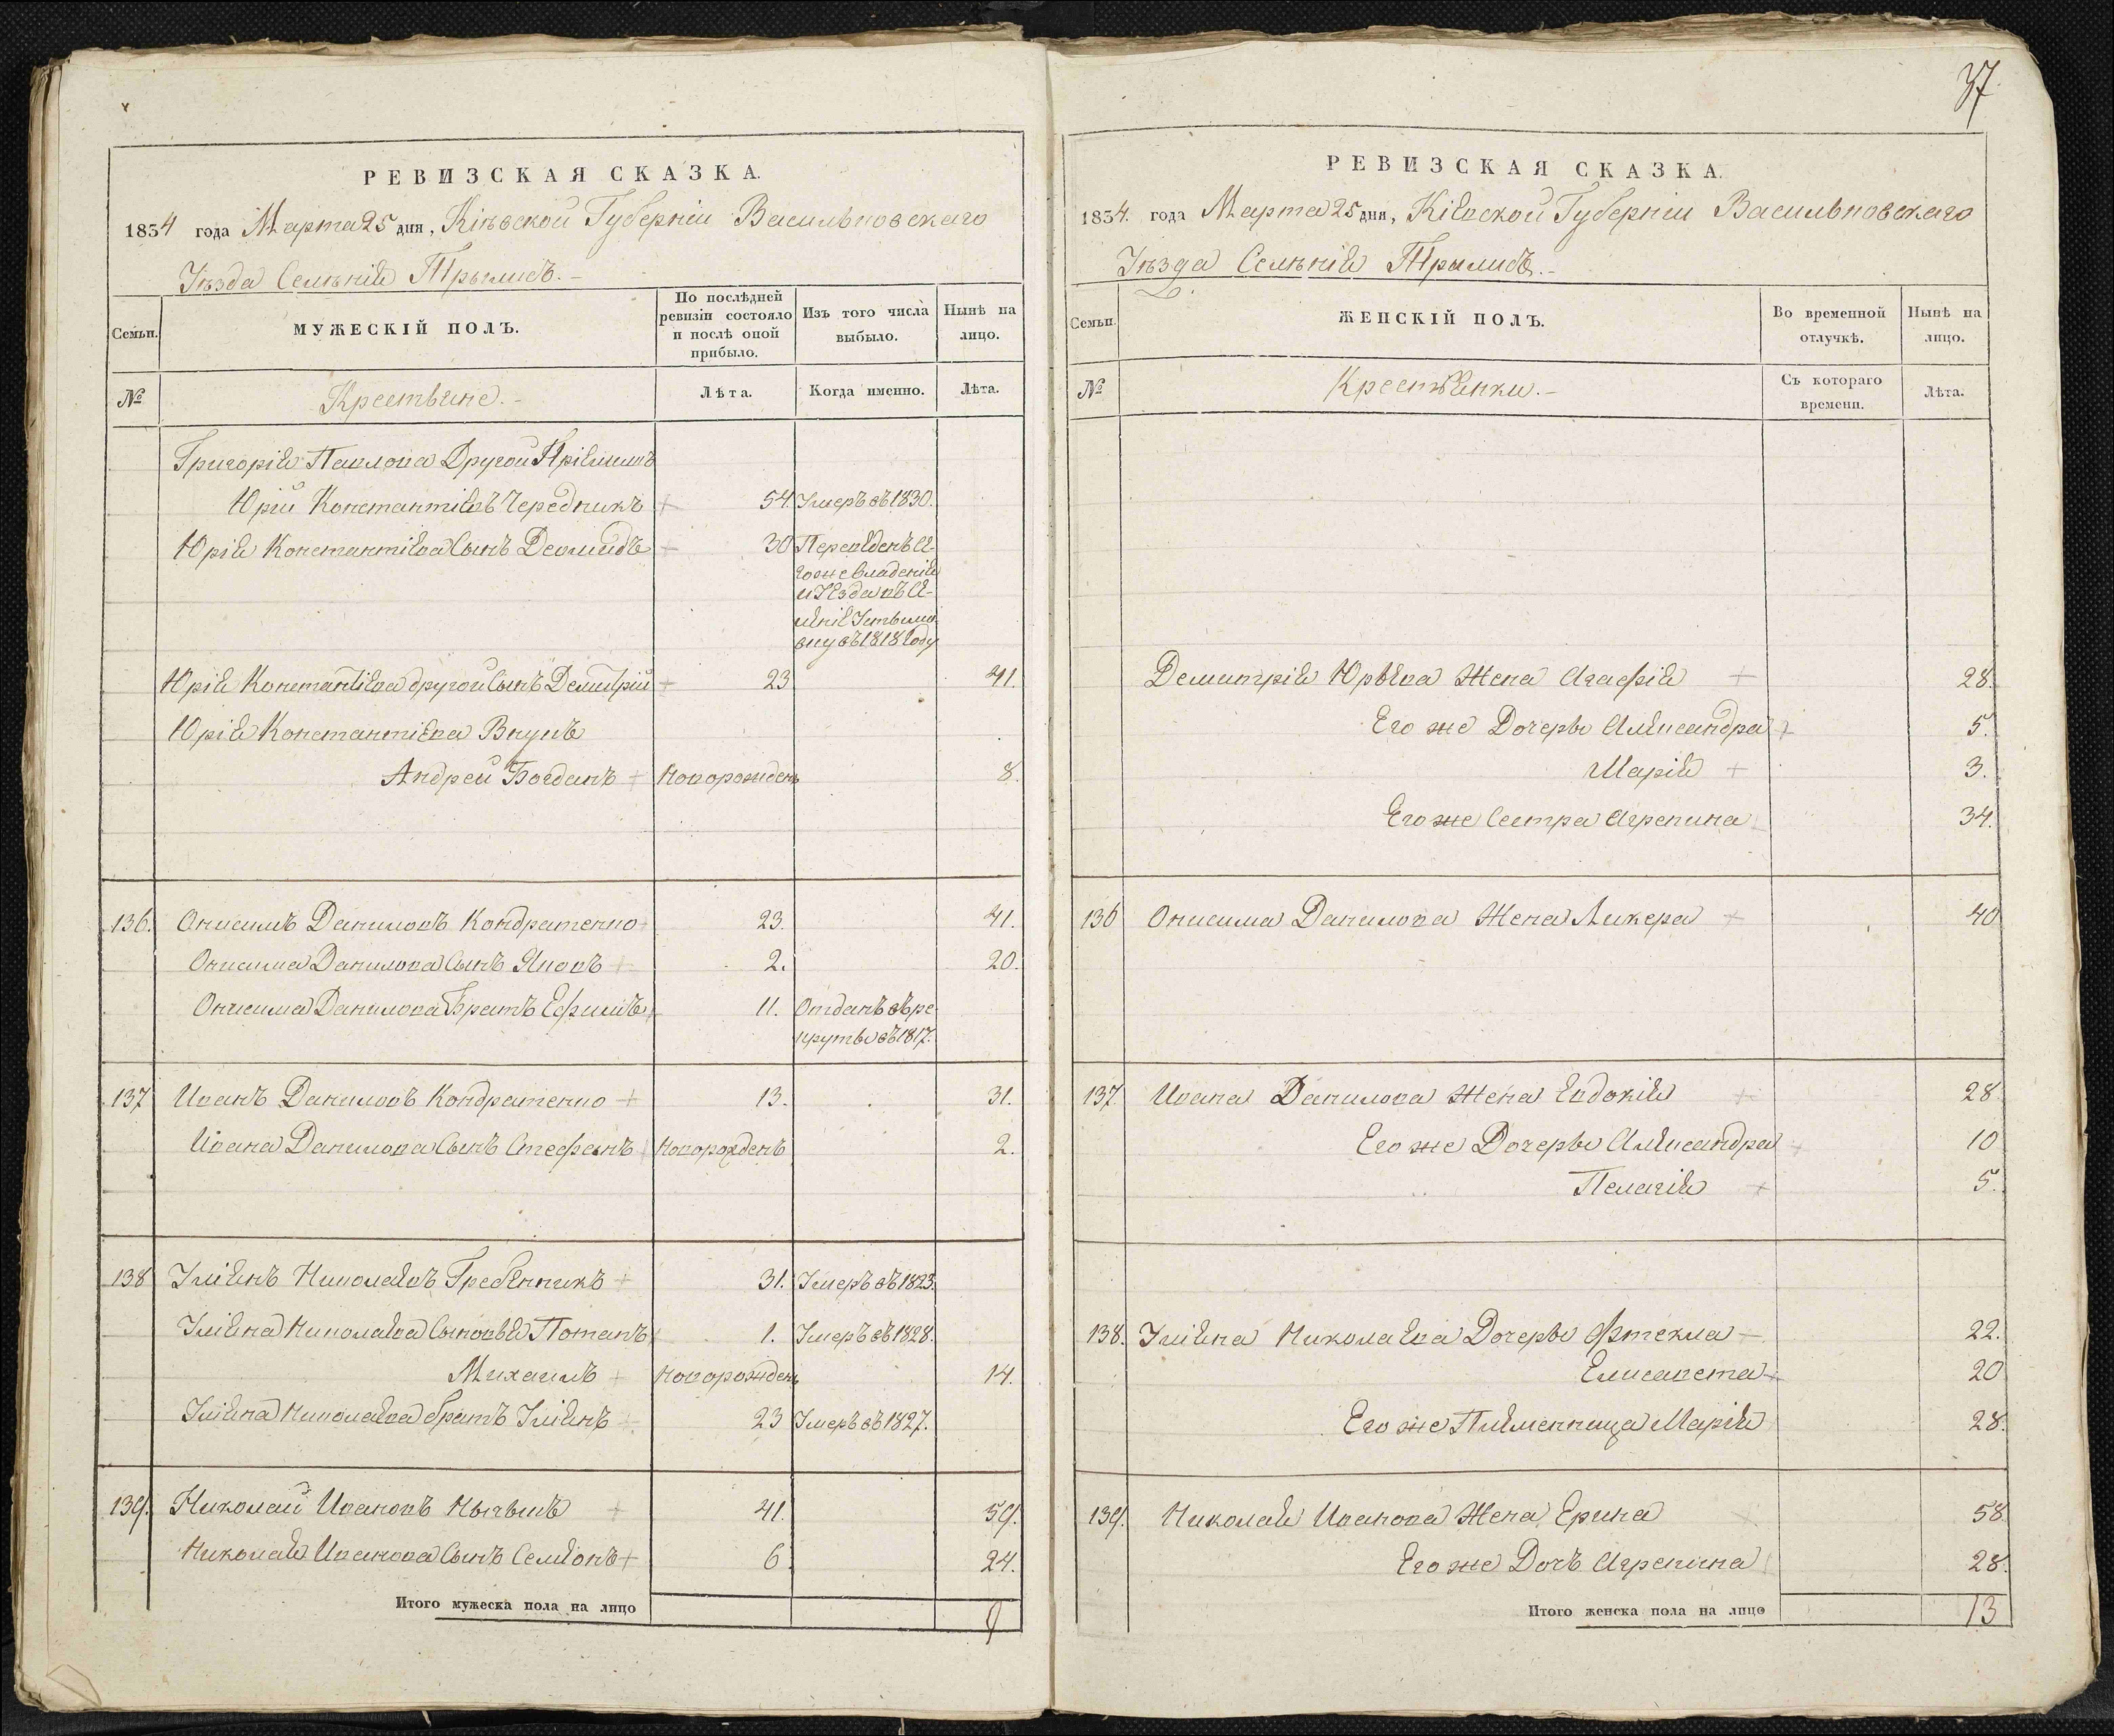 37
РЕВИЗСКАЯ СКАЗКА.
1834 года Марта 25 дня, Кіевской Губерніи Васильковскаго
Уѣзда Селенія Трылисъ.
Семьи.
МУЖЕСКІЙ ПОЛЪ.
По послѣдней ревизіи состояло и послѣ оной прибыло.
Изъ того числа выбыло.
Нынѣ на лицо.
№
Крестьяне.
Лѣта.
Когда именно.
Лѣта.
Григорія Павлова Другой
Юрій Константіевъ Чередникъ 54. Умеръ въ 1830.
Юрія Константіева Сынъ Демидъ 30 Переведенъ
гоже владенія
и Уезда въ Се-
въ 1818 Году
Юрія Константіева другой Сынъ Демитрій 23 41.
Юрія Константіева Внукъ
Андрей Богданъ Новорожденъ 8.
136. Онисимъ Даниловъ Кондратенко 23. 41.
Онисима Данилова Сынъ Яковъ 2. 20.
Онисима Данилова Братъ Ефимъ 11. Отданъ въ ре-
круты въ 1817.
137 Иванъ Даниловъ Кондратенко 13. 31.
Ивана Данилова Сынъ Стефанъ Новорожденъ 2.
138 Уліянъ Николаевъ Гребенникъ 31. Умеръ въ 1823.
Уліяна Николаева Сыновья Потапъ 1. Умеръ въ 1828.
Михаилъ Новорожденъ 14.
Уліяна Николаева братъ Уліянъ 23 Умеръ въ 1827.
139. Николай Ивановъ 41. 59.
Николая Иванова Сынъ Семіонъ 6. 24.
Итого мужеска пола на лицо 9
РЕВИЗСКАЯ СКАЗКА.
1834. года Марта 25 дня, Кіевской Губерніи Васильковскаго
Уѣзда Селенія Трылисъ.
Семьи.
ЖЕНСКІЙ ПОЛЪ.
Во временной отлучкѣ.
Нынѣ на лицо.
№
Крестьянки.
Съ котораго времени.
Лѣта.
Демитрія Юрьева Жена Агафія 28.
Его же Дочеры Александра 5.
Марія 3.
Его же Сестра Агрепина 34.
136 Онисима Данилова Жена Ликера 40
137. Ивана Данилова Жена Евдокія 28.
Его же Дочеры Александра 10
Пелагія 5.
138. Уліяна Николаева Дочеры Фтекла 22.
Елисавета 20
Его же Племенница Марія 28.
139. Николая Иванова Жена Ерина 58
Его же Дочъ Агрепина 28.
Итого женска пола на лицо 13